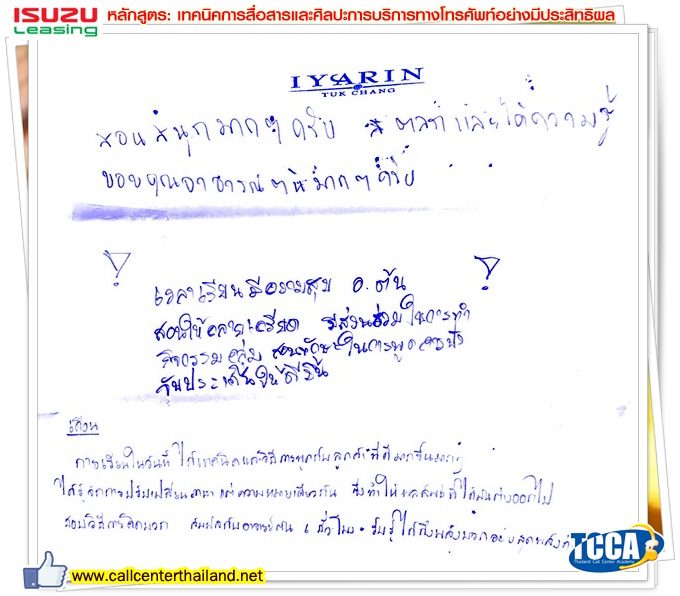 ISUZU
Leasing
หลักสูตร: เทคนิคการสื่อสารและศิลปะการบริการทางโทรศัพท์อย่างมีประสิทธิผล
IYARIN
TUK CHANG
สอนสนุกมากๆครับ ตลก และได้ความรู้
ขอบคุณอาจารย์ มากๆครับ
เวลาเรียนมีความสุข อ.ต้น
สอนให้คลายเครียด มีส่วนร่วมในการทำ
กิจกรรมกลุ่ม สอนทักษะในการพูด
จับประเด็นให้ดีขึ้น
การเรียนในวันนี้ ได้เทคนิคและวิธีการพูดกับลูกค้าที่ดีมากขึ้น
ได้รู้จักการปรับเปลี่ยนภาษา แต่ความหมายเดียวกัน ซึ่งทำให้ผลลัพธ์ที่ได้มันต่างออกไป
สอนวิธีการคิดบวก อาจารย์ต้น 6 ชั่วโมง รับรู้ได้ถึงพลังบวก
TCCA
Thailand Call Center Academy
www.callcenterthailand.net